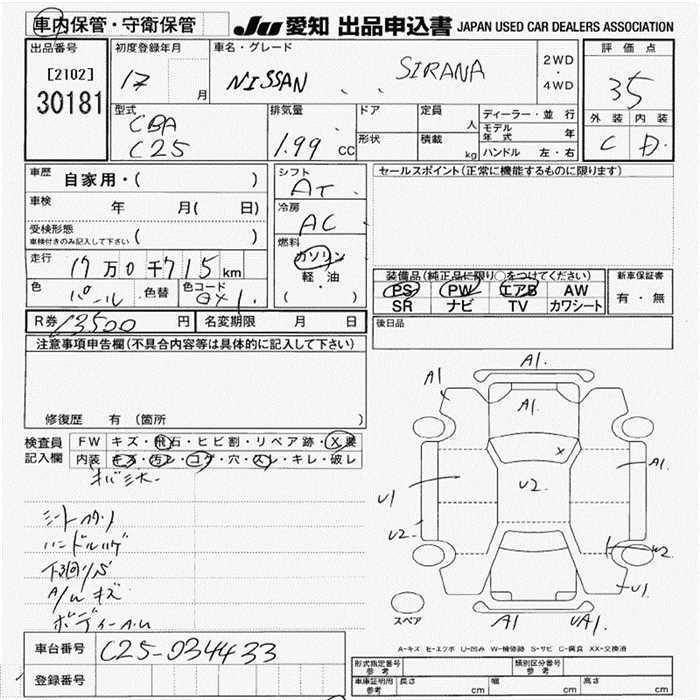 車内保管・守衛保管
JU 愛知 出品申込書 JAPAN USED CAR DEALERS ASSOCIATION
出品番号
[2102]
30181
初度登録年月
17 月
車名・グレード
NISSAN SIRANA
2WD
・
4WD
評価点
35
外装 内装
C D
型式
CBA
C25
排気量
1.99 CC
ドア
形状
定員 人
積載 kg
ディーラー・並行
モデル年式 年
ハンドル 左・右
車歴 自家用・( )
車検 年 月( 日)
受検形態 ( )
車検付きのみ記入して下さい
走行 17万0千715km
色 パール 色替 色コード QX1
シフト
AT
冷房
AC
燃料
ガソリン
軽・油
( ・ )
セールスポイント(正常に機能するものに限ります)
装備品(純正品に限り○をつけてください)
PS PW エアB AW
SR ナビ TV カワシート
新車保証書
有・無
後日品
R券 13500 円 名変期限 月 日
注意事項申告欄(不具合内容等は具体的に記入して下さい)
修復歴 有 (箇所 )
検査員
記入欄
FW キズ・飛石・ヒビ割・リペア跡・X要
内装 キズ・汚レ・コゲ・穴・スレ・キレ・破レ
ハンドルハゲ
下回リS
A/Wキズ
A1.
A1
A1.
X
A1.
U1
U2.
U2
W2.
U1
A1
UA1.
スペア
A-キズ E-エクボ U-凹み W-補修跡 S-サビ C-腐食 XX-交換済
車台番号 C25-034433
登録番号
形式指定番号
参考
類別区分番号
参考
車庫証明用
参考
長さ cm 幅 cm 高さ cm